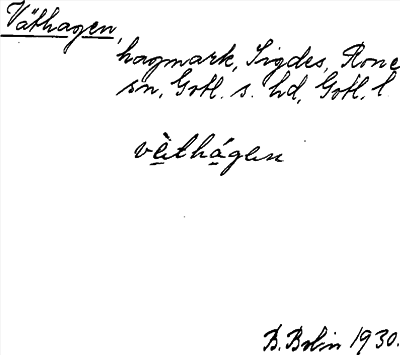 Väthagen,
hagmark, Sigdes, Rone
sn, Gotl. s. hd, Gotl. l
vèthágen
B. Bolin 1930.